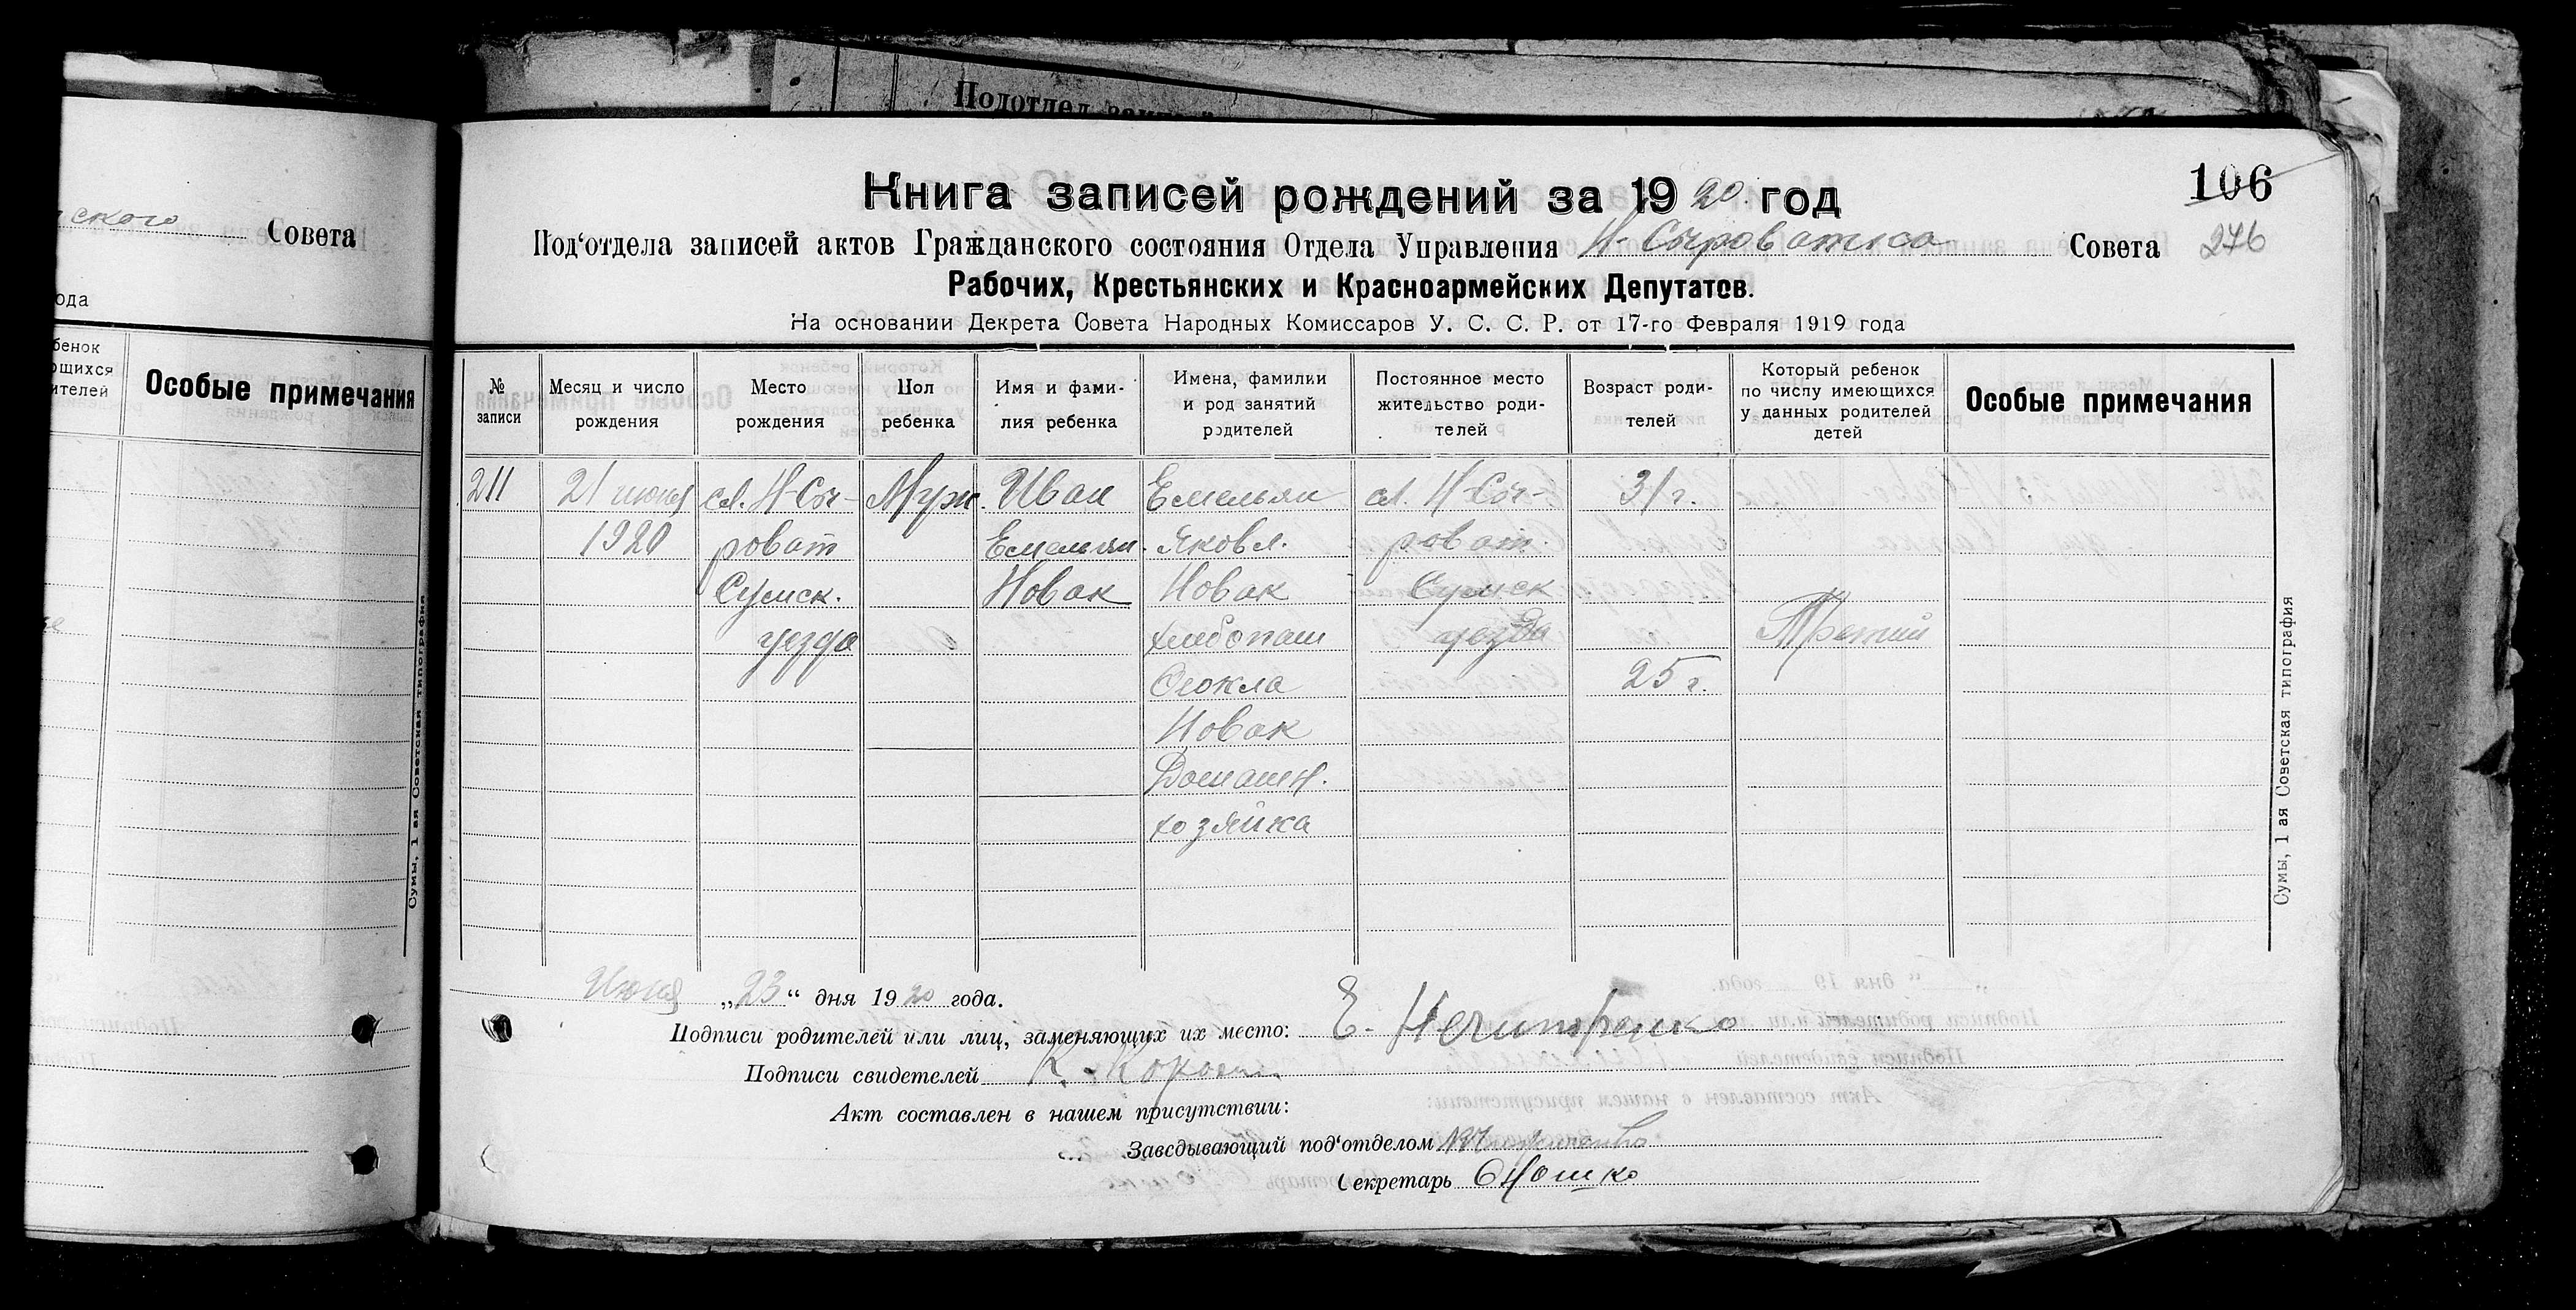 Подотдел
ского Совета
ода
бенок
ющихся
ителей
Особые примечания
Сумы, 1 ая Советская типография
106
246
Книга записей рождений за 1920 год
Под‘отдела записей актов Гражданского состояния Отдела Управления Н-Сыроватка Совета
Рабочих, Крестьянских и Красноармейских Депутатов.
На основании Декрета Совета Народных Комиссаров У. С. С. Р. от 17-го Февраля 1919 года
№ записи
Месяц и число рождения
Место рождения
Пол ребенка
Имя и фами-лия ребенка
Имена, фамилии и род занятий родителей
Постоянное место жительство роди-телей
Возраст роди-телей
Который ребенок по числу имеющихся у данных родителей детей
Особые примечания
211 21 июня сл. Н-Сы- Муж. Иван Емельян сл. Н-Сы- 31 г.
1920 роват Емельян. Яковл. роват.
Сумск. Новак Новак Сумск
уезда хлебопаш уезда Третий
Фекла 25 г.
Новак
Домашн.
хозяйка
Июня „23“ дня 1920 года.
Подписи родителей или лиц, заменяющих их место: Е. Нечипоренко
Подписи свидетелей К. Корот
Акт составлен в нашем присутствии:
Заведывающий под‘отделом
Секретарь
Сумы, 1 ая Советская типография